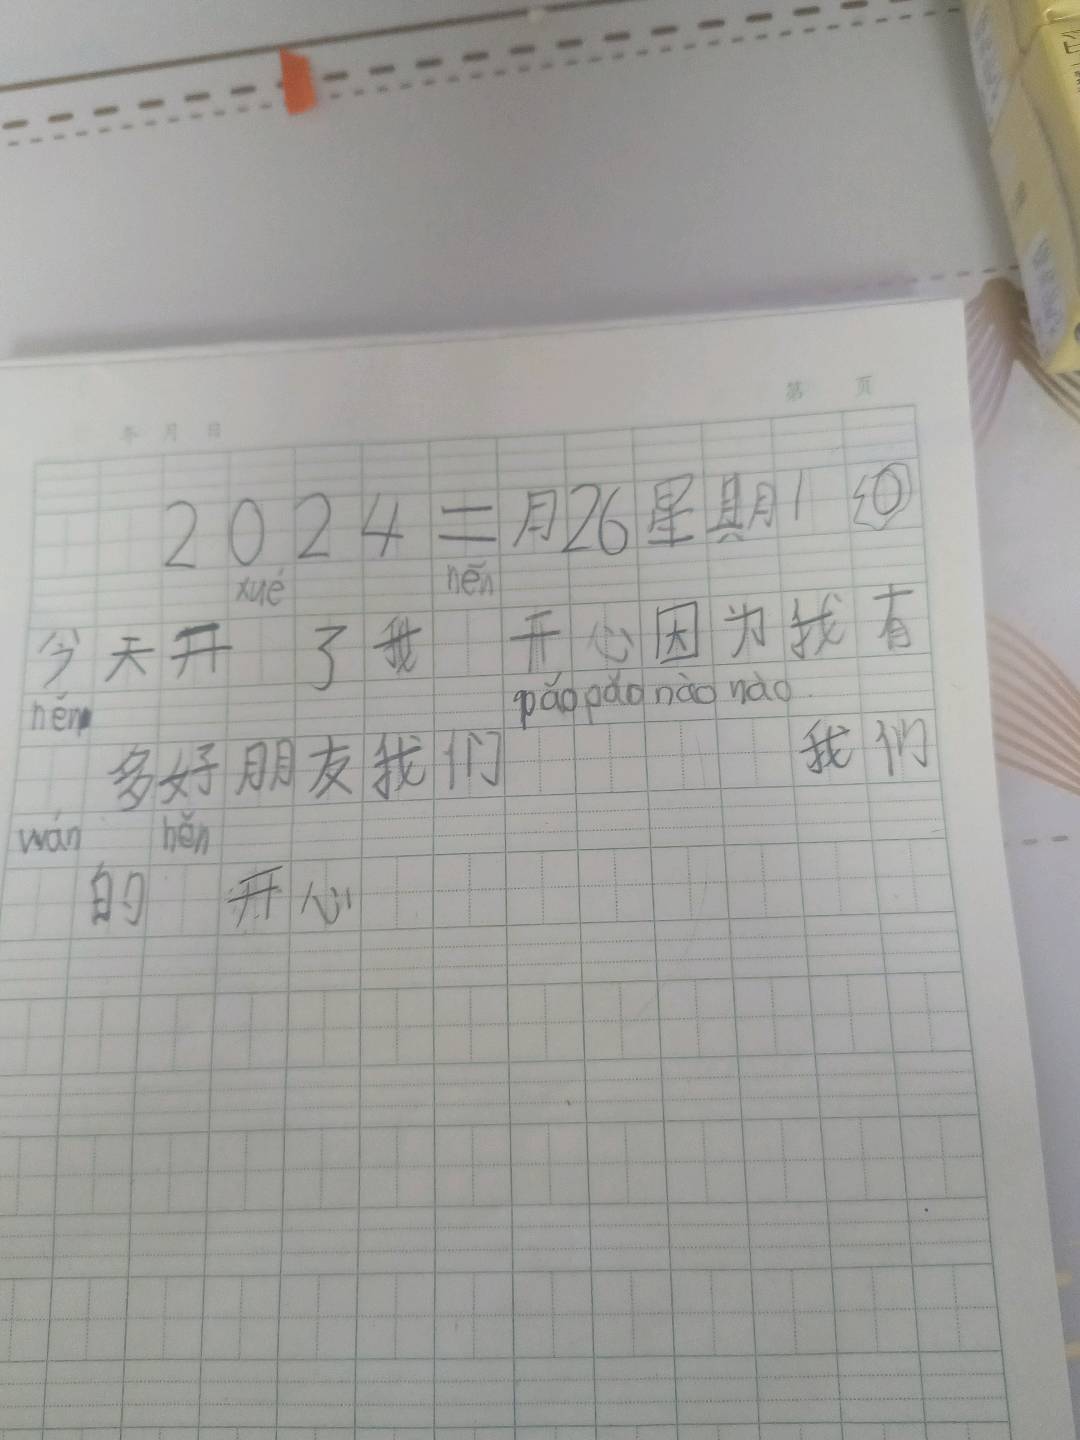 第 页
年 月 日
2024二月26星期1
xué něn
今天开 了我 开心因为我有
hěn pǎo pǎo nào nào
多好朋友我们 我们
wán hěn
的 开心